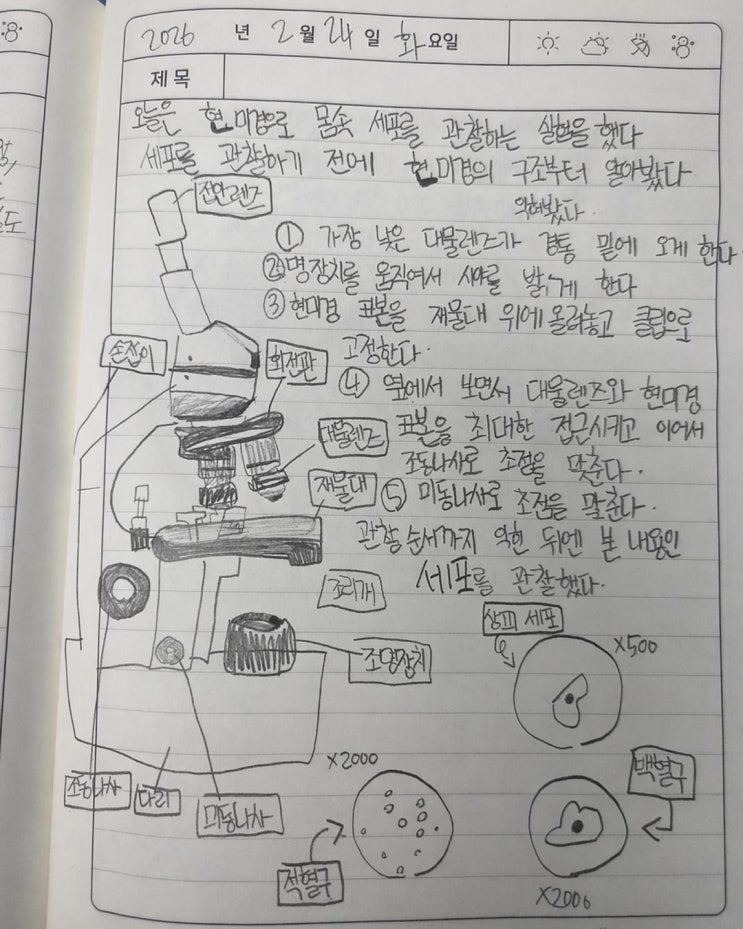 2026 년 2 월 24 일 화 요일
제 목
오늘은 현미경으로 몸속 세포를 관찰하는 실험을 했다
세포를 관찰하기 전에 현미경의 구조부터 알아봤다
익혀봤다.
접안렌즈
① 가장 낮은 대물렌즈가 경통 밑에 오게 한다
② 명장치를 움직여서 시야를 밝게 한다
③ 현미경 표본을 재물대 위에 올려놓고 클립으로
고정한다.
손잡이
회전판
④ 옆에서 보면서 대물렌즈와 현미경
표본을 최대한 접근시키고 이어서
조동나사로 초점을 맞춘다.
대물렌즈
재물대
⑤ 미동나사로 초점을 맞춘다.
관찰 순서까지 익힌 뒤엔 본 내용인
세포를 관찰했다.
조리개
상피 세포
X500
조명장치
X2000
백혈구
조동나사
다리
미동나사
적혈구
X2000